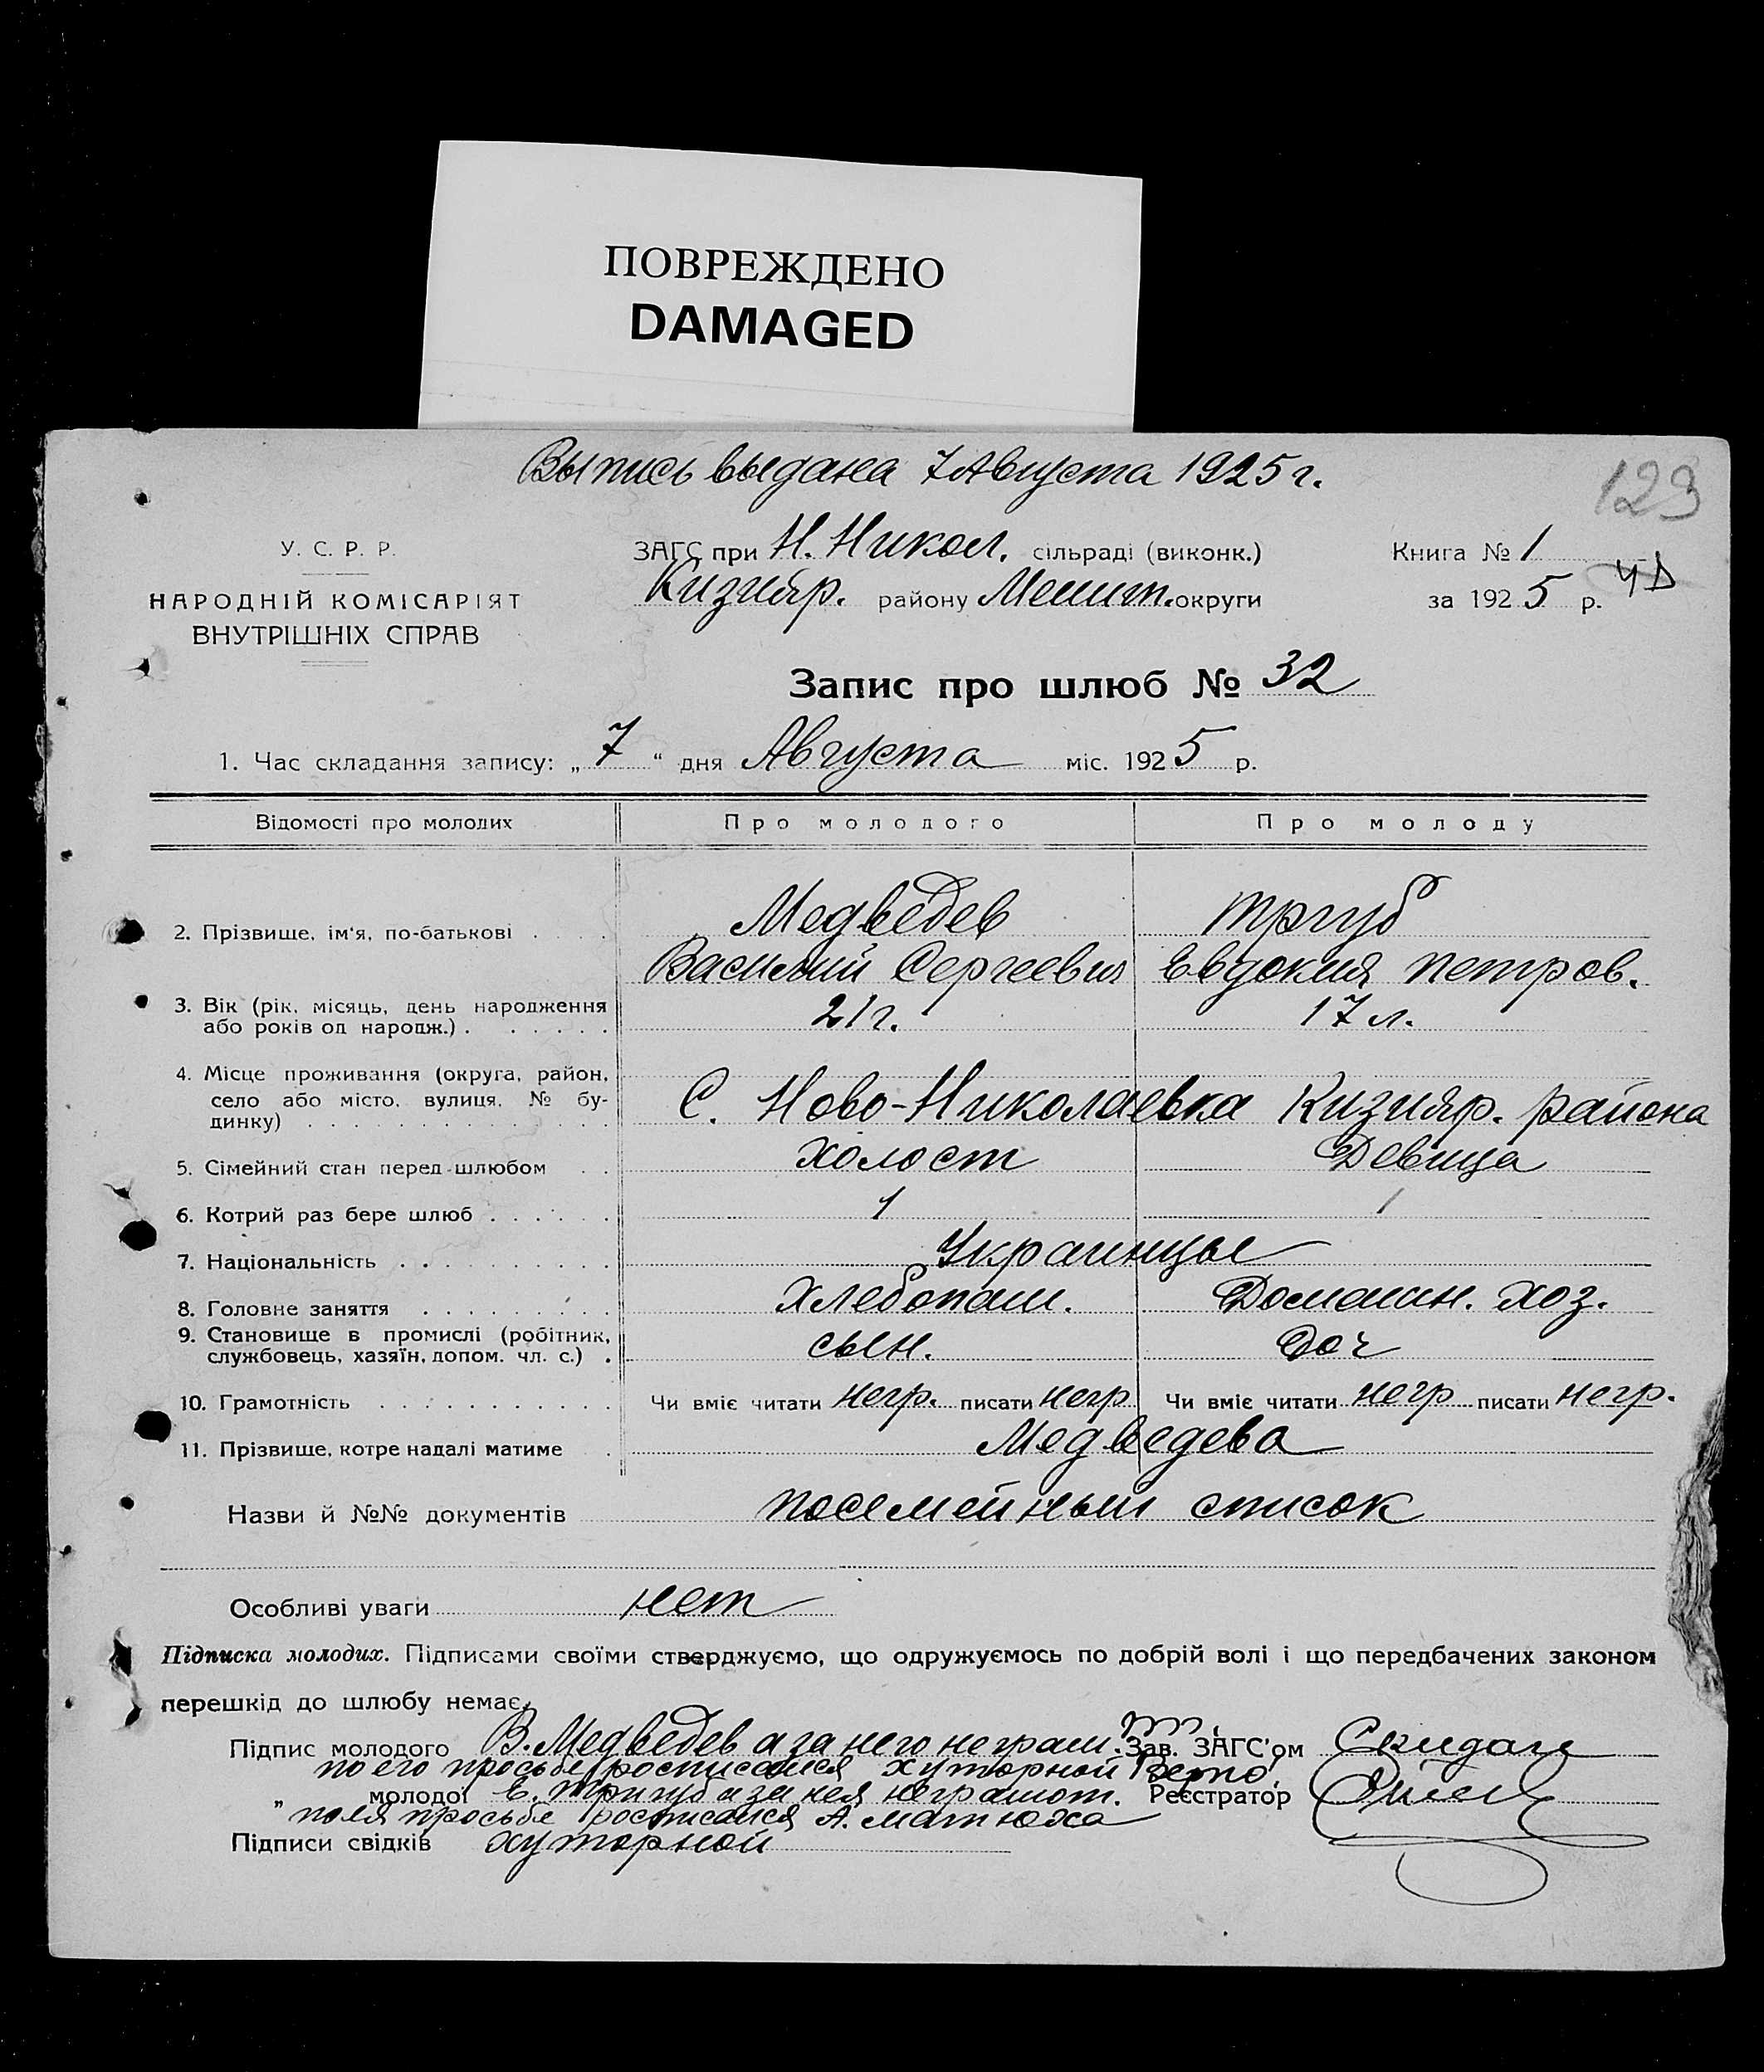 ПОВРЕЖДЕНО
DAMAGED
Выпись выдана 7 Августа 1925 г.
123
У. С. Р. Р.
НАРОДНІЙ КОМІСАРІЯТ
ВНУТРІШНІХ СПРАВ
ЗАГС при Н. Никол. сільраді (виконк.)
Кизияр. району Мелит. округи
Книга № 1
за 1925 р.
Запис про шлюб № 32
1. Час складання запису: „ 7 “ дня Августа міс. 1925 р.
Відомості про молодих Про молодого Про молоду
2. Прізвище, ім'я, по-батькові . . Медведев Тргуб
Василий Сергеевич Евдокия Петров.
3. Вік (рік, місяць, день народження
або років од народж.) . . . . . . 21 г. 17 л.
4. Місце проживання (округа, район,
село або місто, вулиця, № бу-
динку) . . . . . . . . . . . . . С. Ново-Николаевка Кизияр. района
5. Сімейний стан перед шлюбом . . холост Девица
6. Котрий раз бере шлюб . . . . . . 1 1
7. Національність . . . . . . . . . . Украинцы
8. Головне заняття . . . . . . . . . Хлебопаш. Домашн. хоз.
9. Становище в промислі (робітник,
службовець, хазяїн, допом. чл. с.) . сын. доч
10. Грамотність . . . . . . . . . . . Чи вміє читати негр. писати негр Чи вміє читати негр писати негр.
11. Прізвище, котре надалі матиме . Медведева
Назви й №№ документів посемейный список
Особливі уваги нет
Підписка молодих. Підписами своїми стверджуємо, що одружуємось по добрій волі і що передбачених законом
перешкід до шлюбу немає.
Підпис молодого В. Медведев а за него неграм. Зав. ЗАГС'ом
по его просьбе росписался хуторной
„ молодої Е. Тригуб а за нея неграмот. Реєстратор
поля просьбе росписался А. Матюха
Підписи свідків хуторной